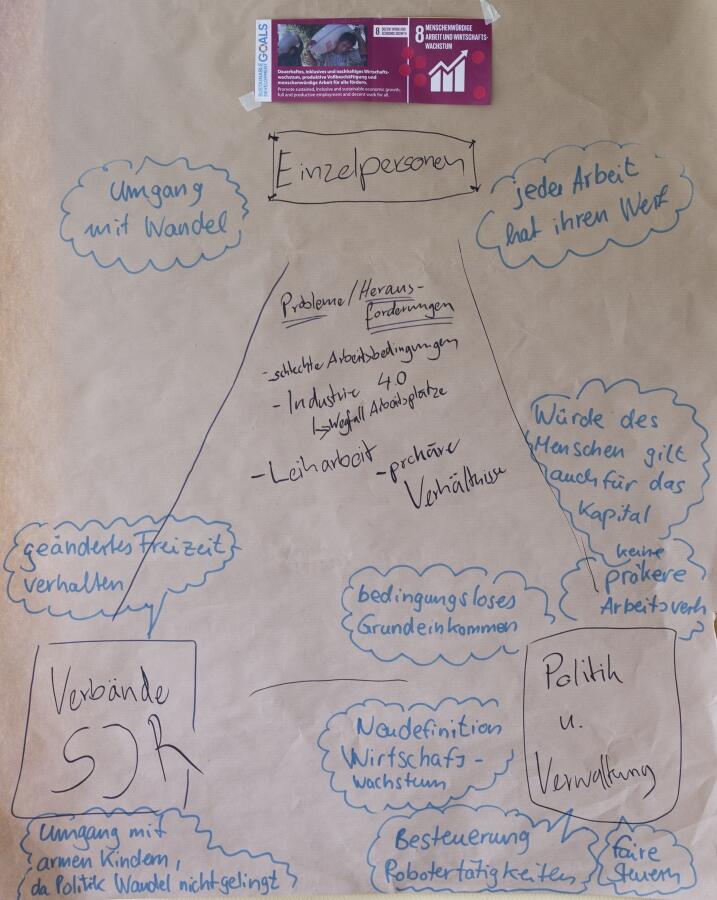 SUSTAINABLE DEVELOPMENT GOALS
8 DECENT WORK AND
ECONOMIC GROWTH
8 MENSCHENWÜRDIGE
ARBEIT UND WIRTSCHAFTS-
WACHSTUM
Dauerhaftes, inklusives und nachhaltiges Wirtschafts-
wachstum, produktive Vollbeschäftigung und
menschenwürdige Arbeit für alle fördern.
Promote sustained, inclusive and sustainable economic growth,
full and productive employment and decent work for all.
Einzelpersonen
Umgang
mit Wandel
jede Arbeit
hat ihren Wert
Probleme/Heraus-
forderungen
- schlechte Arbeitsbedingungen
- Industrie 4.0
↳ Wegfall Arbeitsplätze
- Leiharbeit
- prekäre
Verhältnisse
Würde des
Menschen gilt
auch für das
Kapital
keine
prökere
Arbeitsverh
geändertes Freizeit
verhalten
bedingungsloses
Grundeinkommen
Verbände
SJR
Politik
u.
Verwaltung
Neudefinition
Wirtschafs-
wachstum
Umgang mit
armen Kindern,
da Politik Wandel nicht gelingt
Besteuerung
Robotertätigkeiten
faire
Steuern